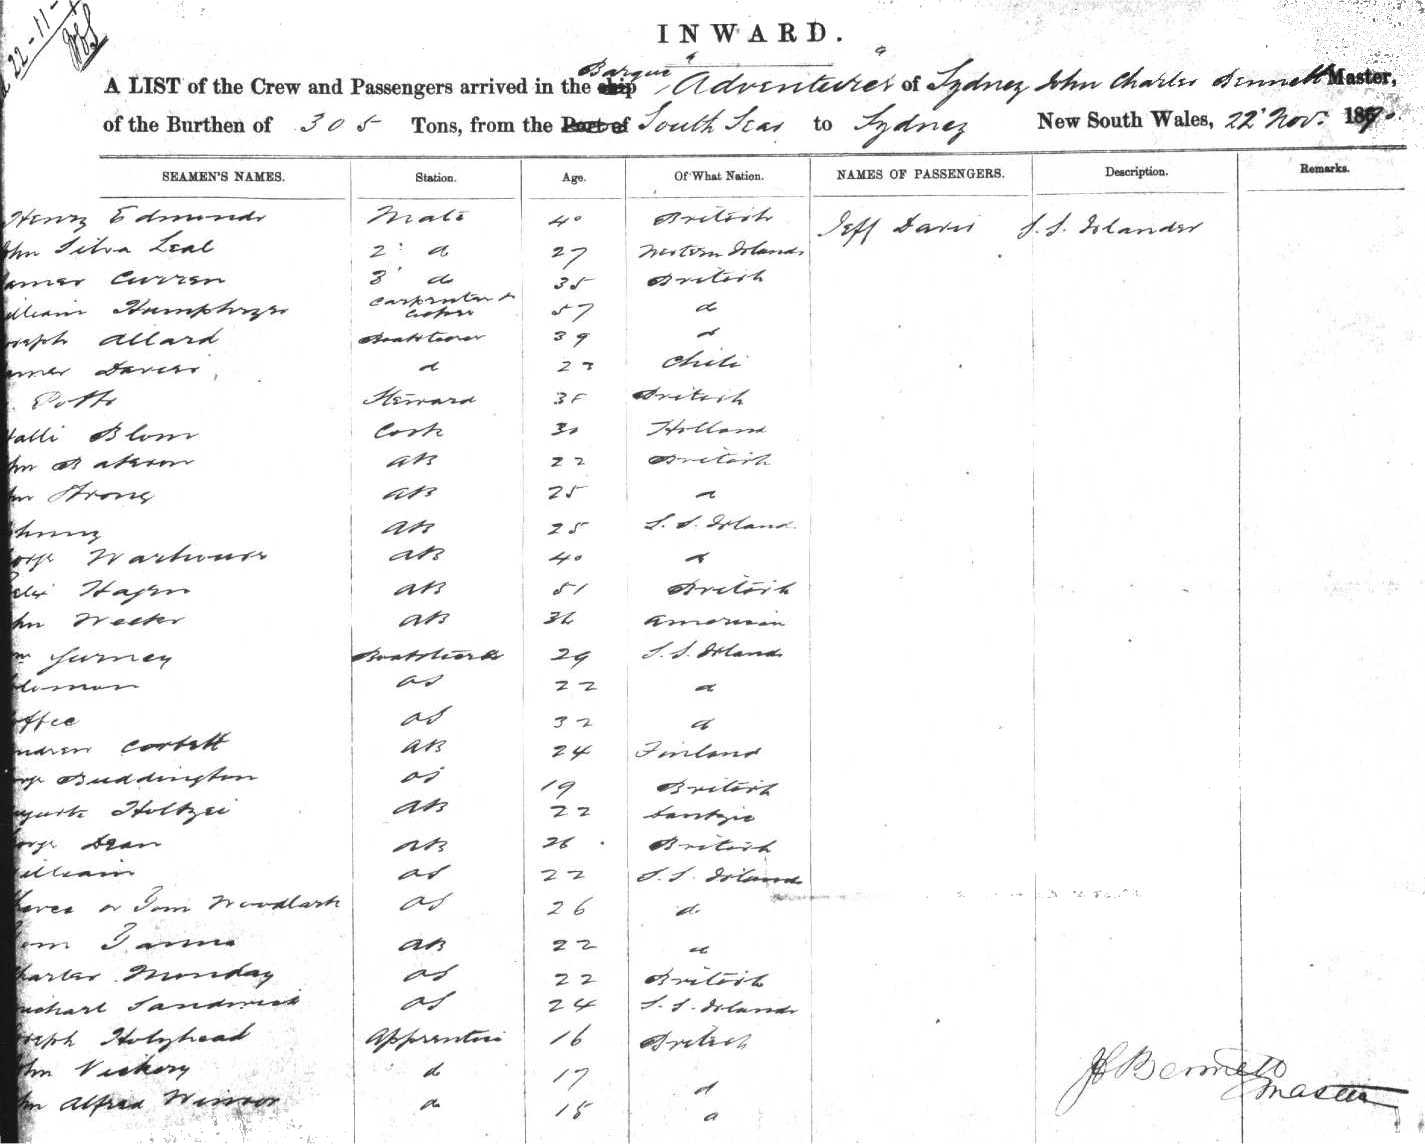 22-11-
INWARD.
A LIST of the Crew and Passengers arrived in the ship Barque "Adventurer" of Sydney John Charles Bennett Master,
of the Burthen of 305 Tons, from the Port of South Seas to Sydney New South Wales, 22 Nov. 1870
SEAMEN'S NAMES. Station. Age. Of What Nation. NAMES OF PASSENGERS. Description. Remarks.
Henry Edmunds Mate 40 British Jeff Davis S.S. Islander
hn Silva Leal 2 d 27 Western Islands
ames Curren 3 do 35 British
illiam Humphreys Carpenter & Cooper 57 d
oseph Allard Boatsteerer 39 d
ames Davis d 23 Chili
Potts Steward 38 British
Blom Cook 30 Holland
hn Bateson AB 22 British
hn Strong AB 25 d
ohnny AB 25 S.S. Island
orge Warhouse AB 40 d
elix Hagen AB 51 British
hn Meeks AB 36 American
m Gurney Boatsteerer 29 S.S. Islands
olomon OS 22 d
offee OS 32 d
ndrew Corbett AB 24 Finland
orge Buddington OS 19 British
uguste Holtzei AB 22 Dantzic
orge Dean AB 26 British
illiam OS 22 S.S. Islands
or Tom Woodlark OS 26 d
om Tanna AB 22 d
harles Monday OS 22 British
ichael Sandwich OS 24 S.S. Islands
oseph Holyhead Apprentice 16 British
ohn Vickery d 17 d
hn Alfred Winsor d 18 d
JC Bennett
Master